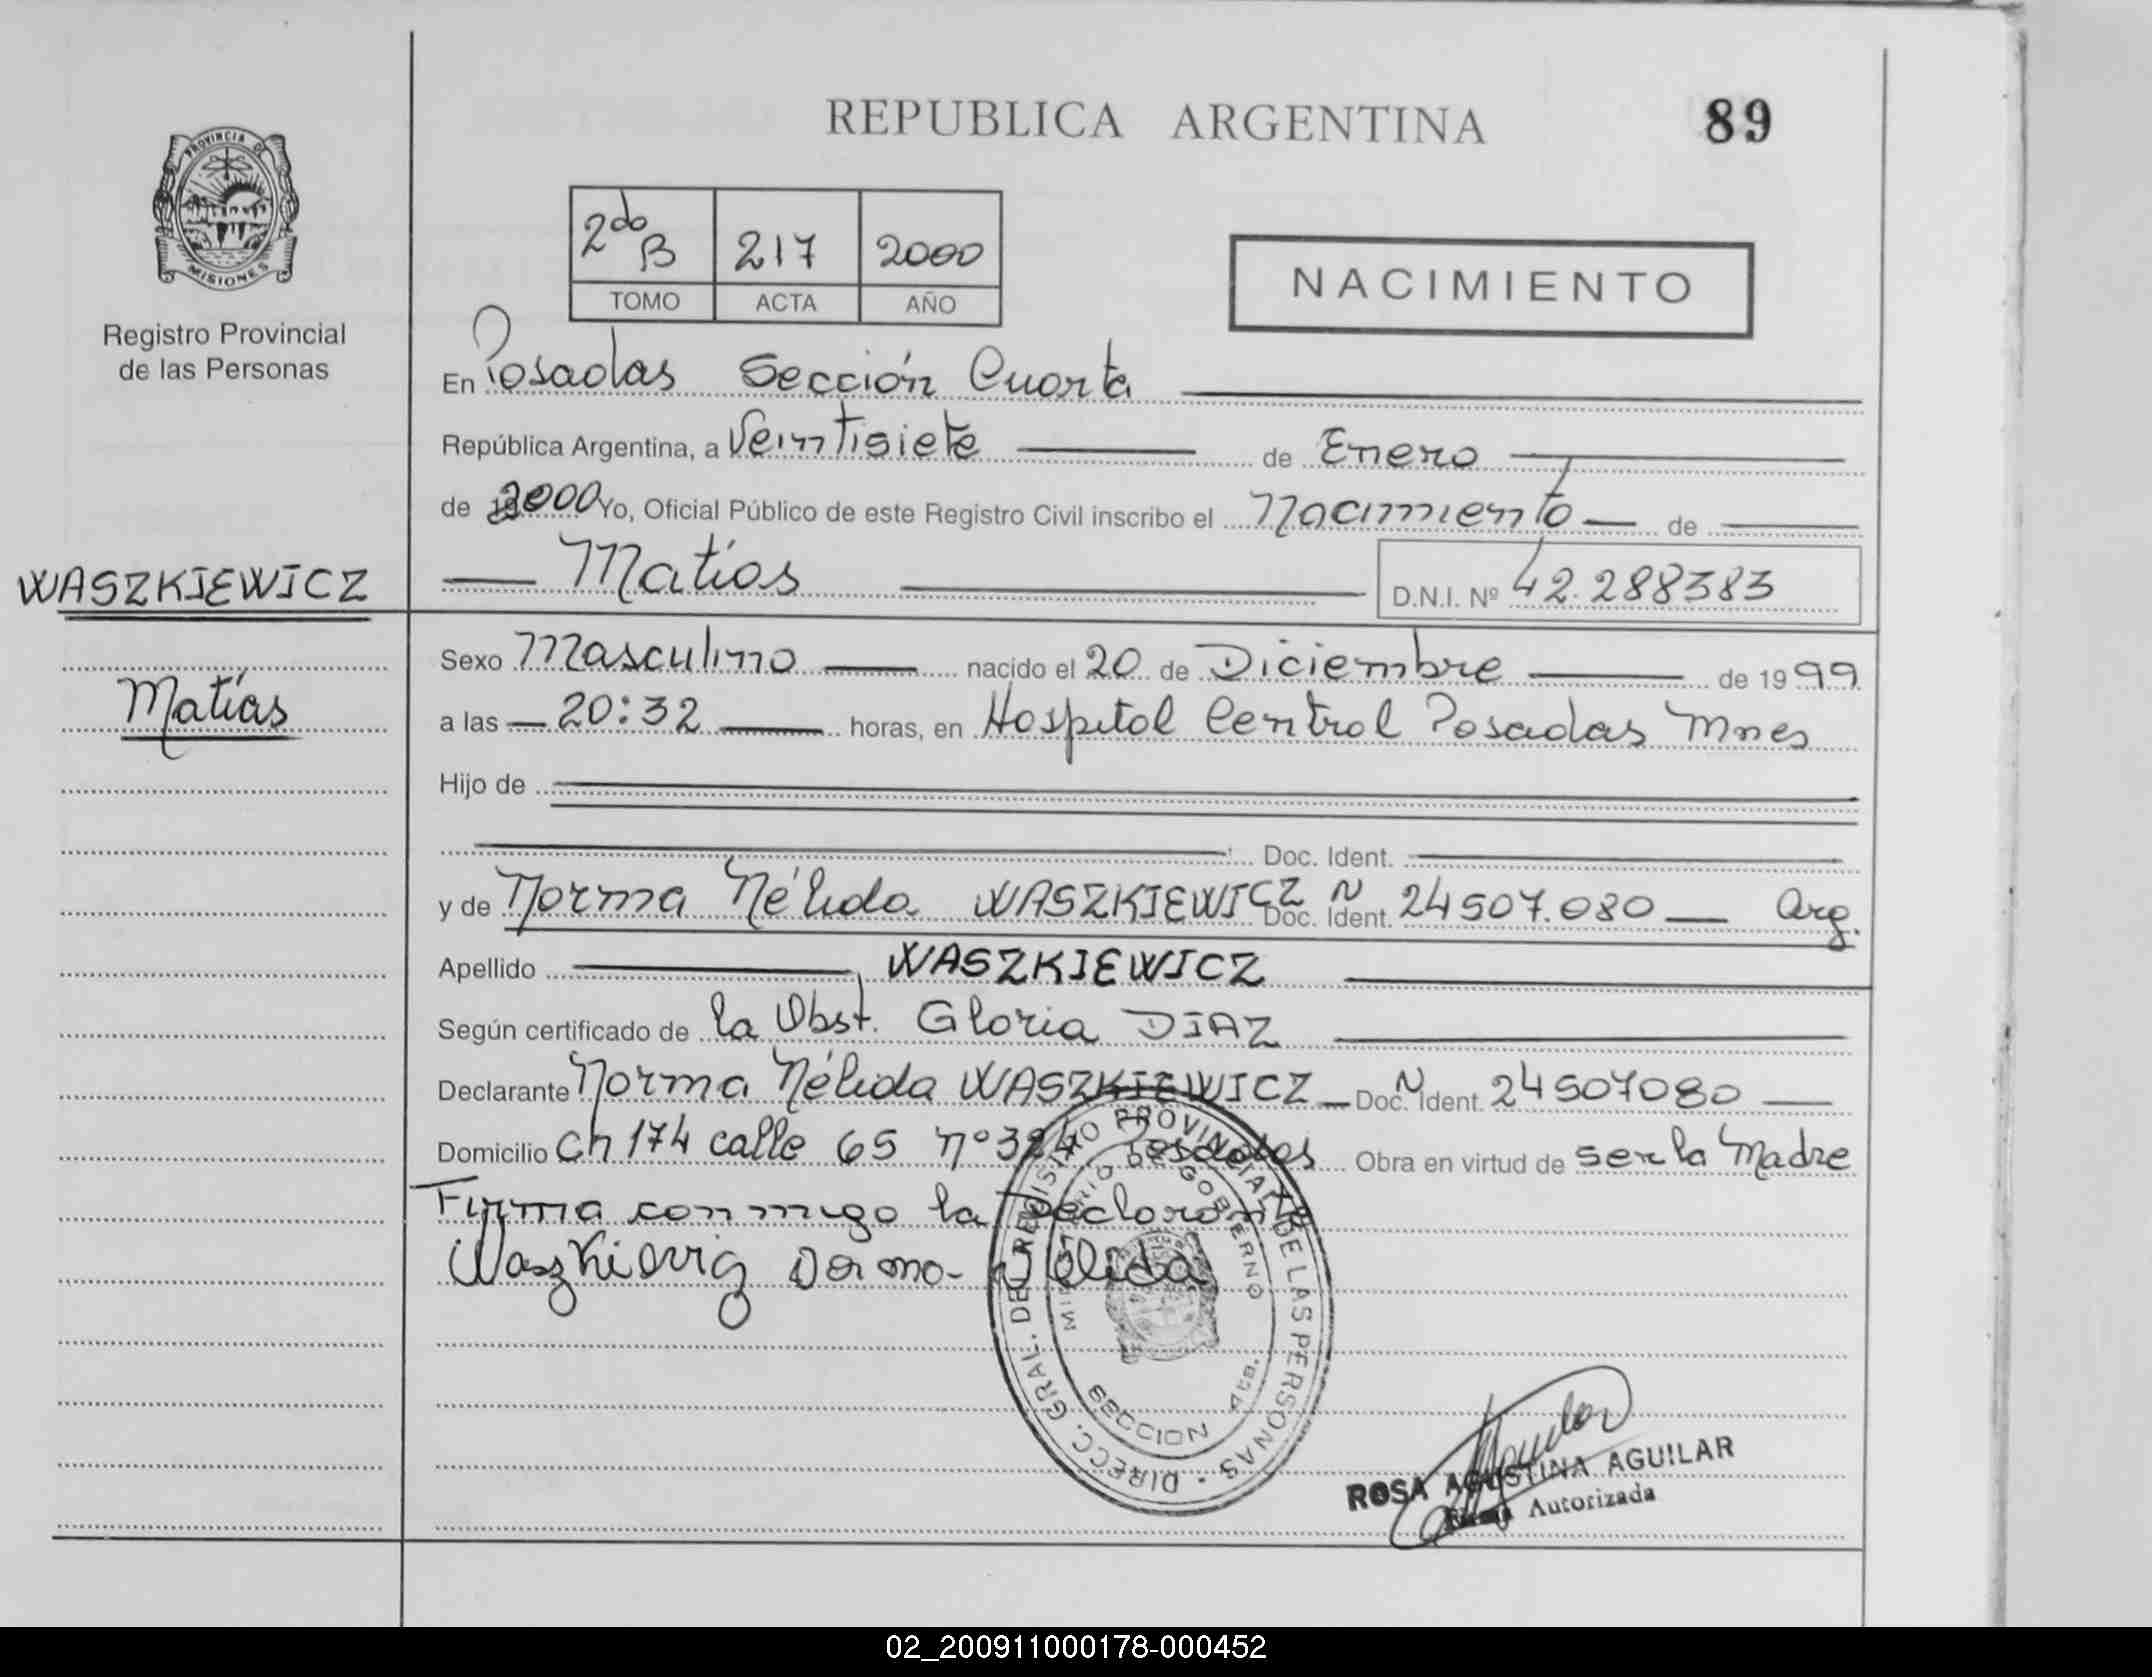 REPUBLICA ARGENTINA
89
PROVINCIA DE
MISIONES
Registro Provincial
de las Personas
2do B 217 2000
TOMO ACTA AÑO
NACIMIENTO
En Posadas Sección Cuarta
República Argentina, a Veintisiete de Enero
de 2000 Yo, Oficial Público de este Registro Civil inscribo el Nacimiento de
WASZKIEWICZ
Matías D.N.I. Nº 42.288383
Matías
Sexo Masculino nacido el 20 de Diciembre de 1999
a las 20:32 horas, en Hospital Central Posadas Mnes
Hijo de
Doc. Ident.
y de Norma Nélida WASZKIEWICZ Doc. Ident. N 24507.080 Arg.
Apellido WASZKIEWICZ
Según certificado de la Obst. Gloria DIAZ
Declarante Norma Nélida WASZKIEWICZ Doc. Ident. N 24507080
Domicilio Ch 174 calle 65 nº 324 Posadas Obra en virtud de ser la Madre
Firma conmigo la Declarante
Nélida
DIRECC. GRAL. DEL REGISTRO PROVINCIAL DE LAS PERSONAS
MINISTERIO DE GOBIERNO
SECCION 4ta.
ROSA AGUSTINA AGUILAR
Firma Autorizada
02_200911000178-000452